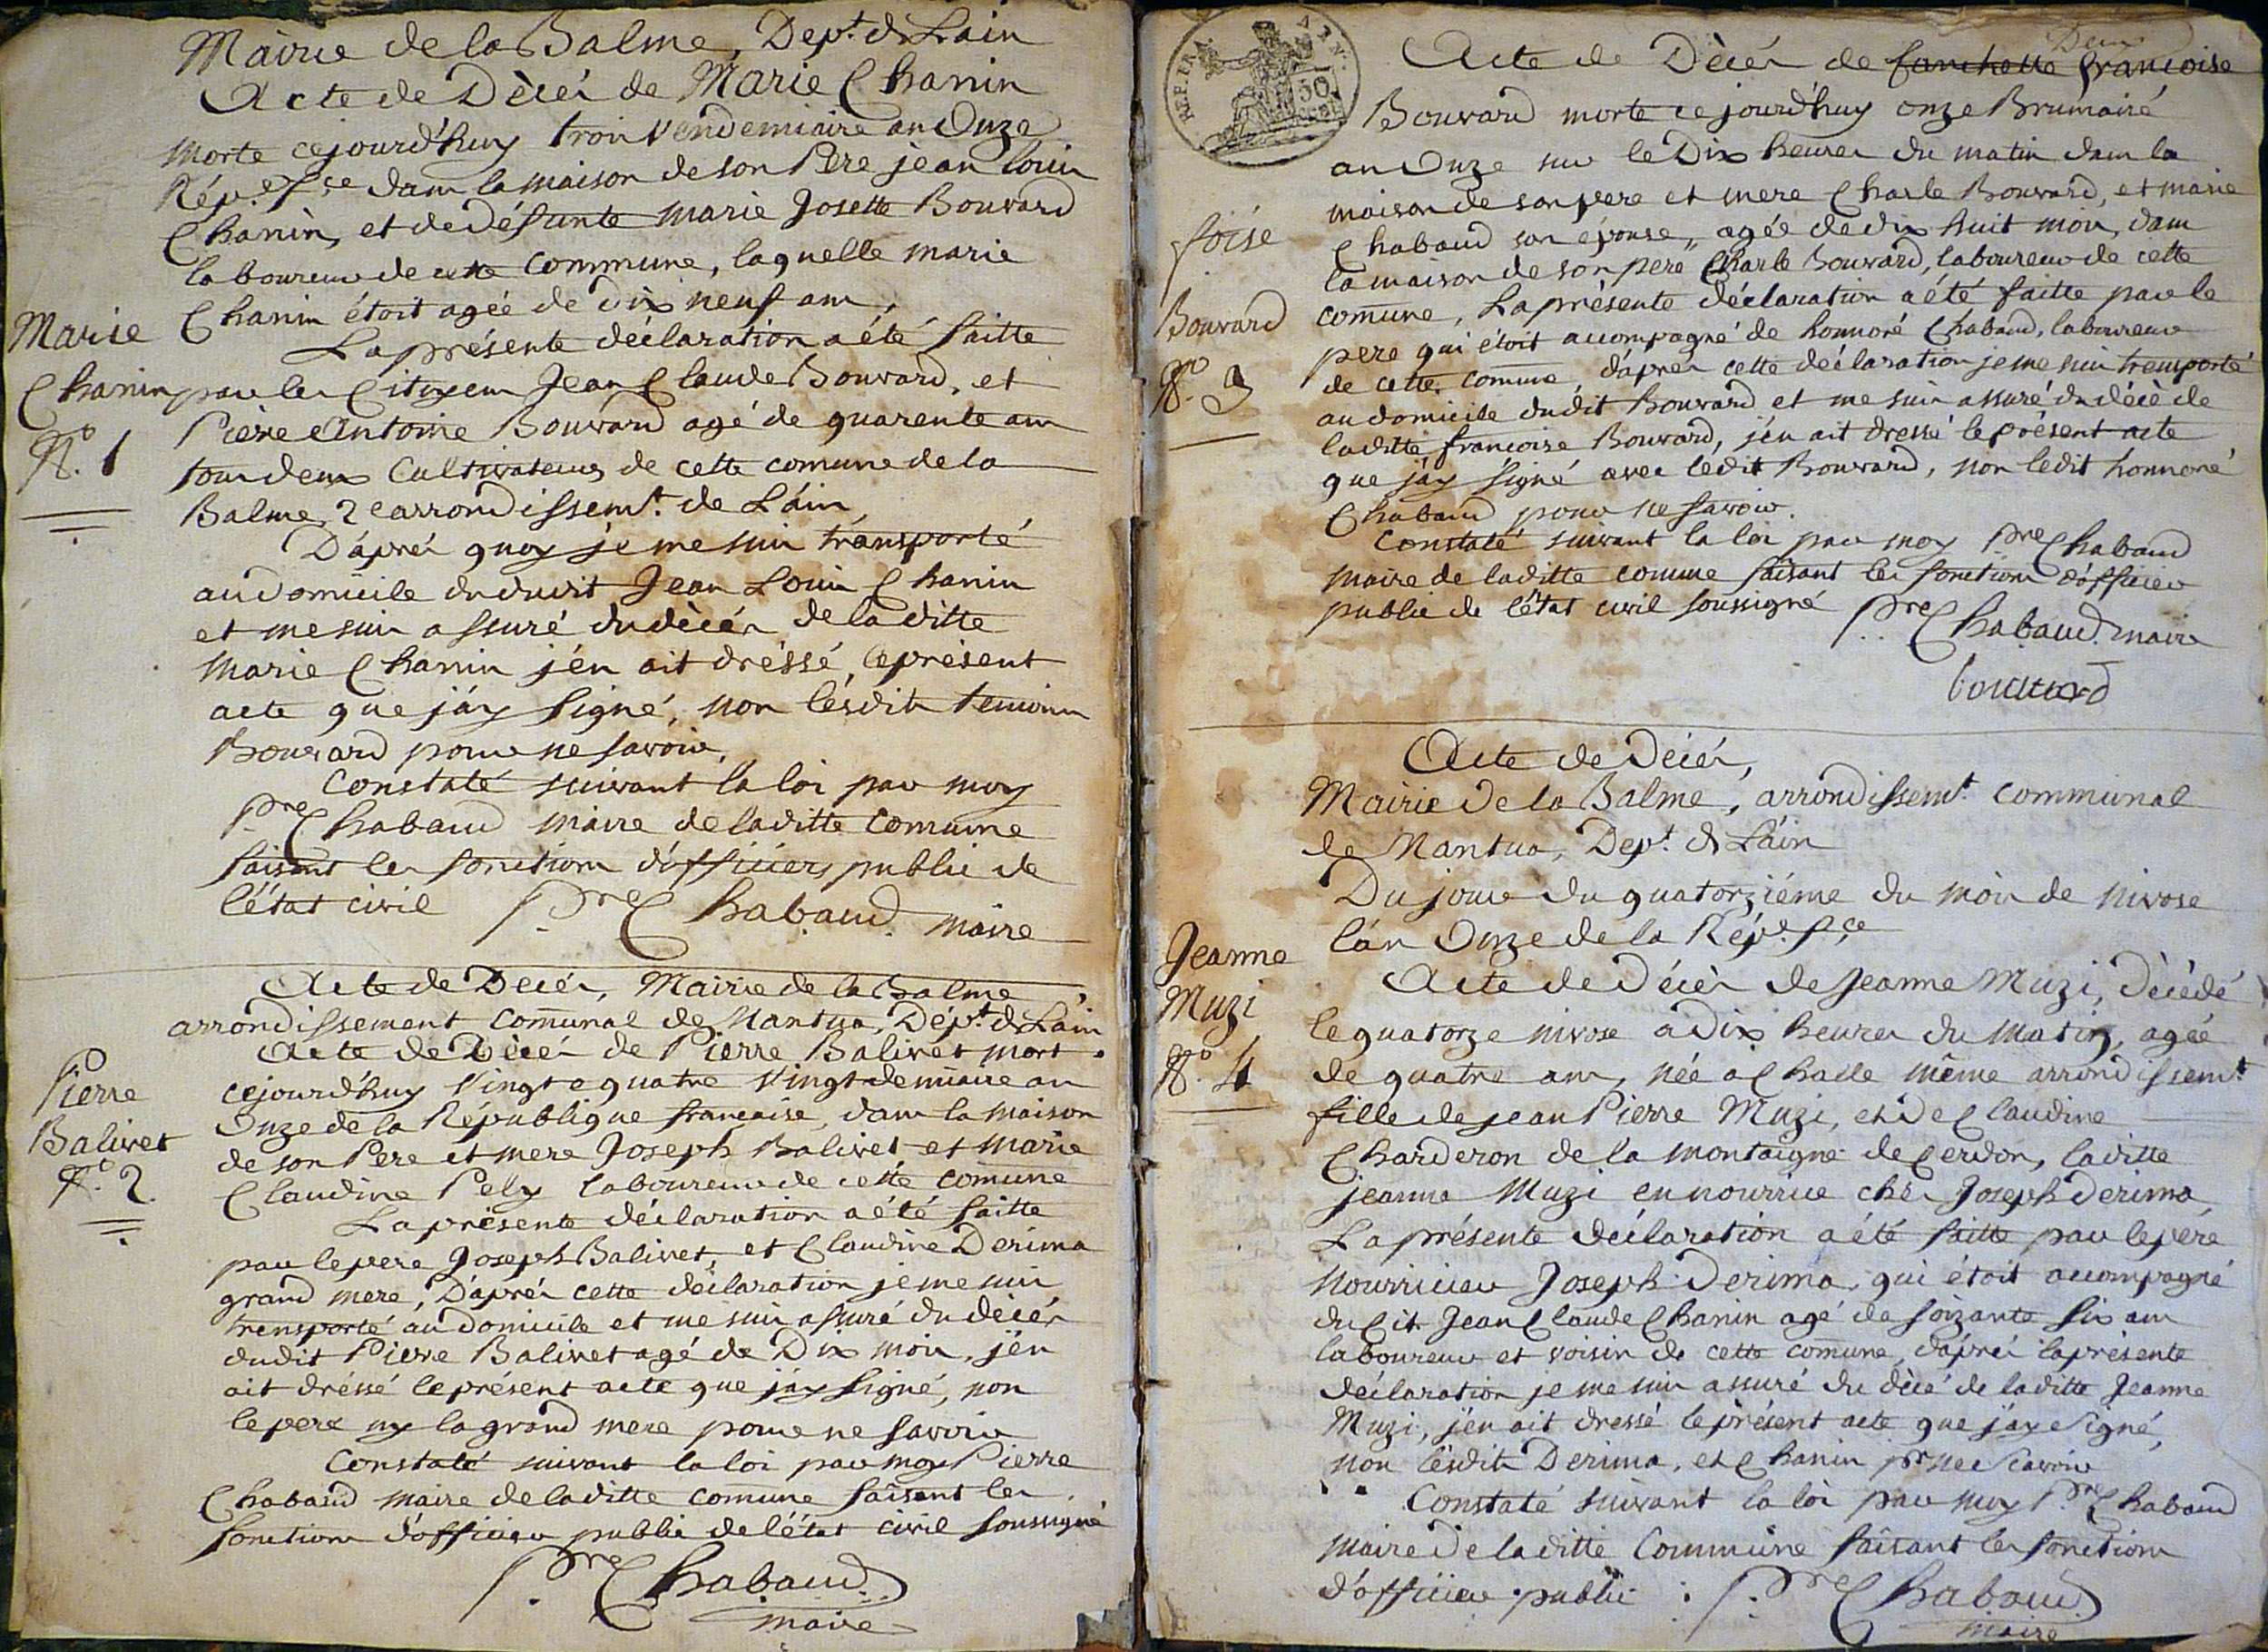 Mairie de la Balme, Dep.t de Lain
Acte de Dècés de Marie Chanin
morte cejourd'huy trois Vendemiaire an Onze
Rép.e f.çe dans la maison de son Pere jean louis
Chanin, et de défunte Marie Josette Bouvard
laboureur de cette Commune, laquelle marie
Chanin étoit agée de dix neuf ans,
La présente déclaration a été faitte
Marie
Chanin
N.o 1
par les Citoyens Jean Claude Bouvard, et
Pièrre Antoine Bouvard agé de quarente ans
tous deux Cultivateurs de cette comune de la
Balme, 2e arrondissem.t de L'ain,
D'áprés quoy je me suis transporté
au domicile du dudit Jean Louis Chanin
et me suis assuré du dècés de la ditte
Marie Chanin j'én ait dréssé, le présent
acte que j'áy signé, non lésdits temoins
Bouvard pour ne savoir.
Constaté suivant la loi par moy
P.re Chabaud maire de laditte Comune
faisant les fonctions d'officiers public de
l'état civil P.re Chabaud. maire
Acte de Decés, Mairie de la Balme,
arrondissement Comunal de Nantua, Dép.t de Lain
Acte de Décés de Pierre Balivet mort
Pierre
Balivet
N.o 2.
cejourd'huy Vingt e quatre Vingtdemiaire an
Onze de la République francaise, dans la maison
de son Pere et mere Joseph Balivet et marie
Claudine Pely laboureur de cette comune
La présente déclaration a été faitte
par le pere Joseph Balivet, et Claudine Derima
grand mere, D'áprés cette déclaration je me suis
trensporté au domicile et me suis assuré du décés
dudit Pierre Balivet agé de Dix mois, j'én
ait dréssé le présent acte que j'áy signé, non
le pere ny la grand mere pour ne savoir
Constaté suivant la loi par moy Pierre
Chabaud maire de laditte comune faisent les
fonctions d'officier public de l'état civil soussigné
P.re Chabaud.
maire
REP. FRA. 50
Deux
Acte de Dècés de fanchette francoise
Bouvard morte ce jourd'huy onze Brumairé
an Onze sur le Dix heures du matin dans la
maison de son pere et mere Charle Bouvard, et marie
Chabaud son épouse, agée de dix huit mois, dans
la maison de son pere Charle Bouvard, laboureur de cette
foisé
Bouvard
N.o 3
comune, La présente déclaration a été faitte par le
pere qui étoit accompagné de honnoré Chabaud, laboureur
de cette comune, d'aprés cette déclaration je me suis tremporté
au domicile dudit Bouvard et me suis assuré du décè de
laditte francoise Bouvard, j'én ait dressé le présent acte
que j'áy signé avec lédit Bouvard, non ledit honnoré
Chabaud pour ne savoir.
Constaté suivant la loi par moy P.re Chabaud
maire de laditte comune faisant les fonctions d'officier
public de l'état civil soussigné P.re Chabaud. maire
bouvard
Acte de Decés,
Mairie de la Balme, arrondissem.t communal
de Nantua, Dep.t de L'áin
Du jour du quatorziéme du mois de nivose
l'án Onze de la Rép.e f.çe
Acte de Décès de Jeanne Muzi, Dècèdé
Jeanne
Muzi
N.o 4
le quatorze nivose a Dix heures du matin, agée
de quatre ans, née a Challe même arrondissem.t
fille de jean Pierre Muzi, et De Claudine
Charderon de la montaigne de Cerdon, laditte
jeanne Muzi en nourrice chés Joseph Derima,
La présente déclaration a été faitte par le pere
nourricier Joseph Derima, qui étoit accompagné
du Cit. Jean Claude Chanin agé de soizante six ans
laboureur et voisin de cette comune, d'áprés la présente
déclaration je me suis assuré du dècé de laditte Jeanne
Muzi, j'én ait dressé le présent acte que j'áy signé,
non lésdits Derima, et Chanin p.r ne scavoir
Constaté suivant la loi par moy P.re Chabaud
maire de laditte Commune faisant les fonctions
d'officier public : P.re Chabaud
maire